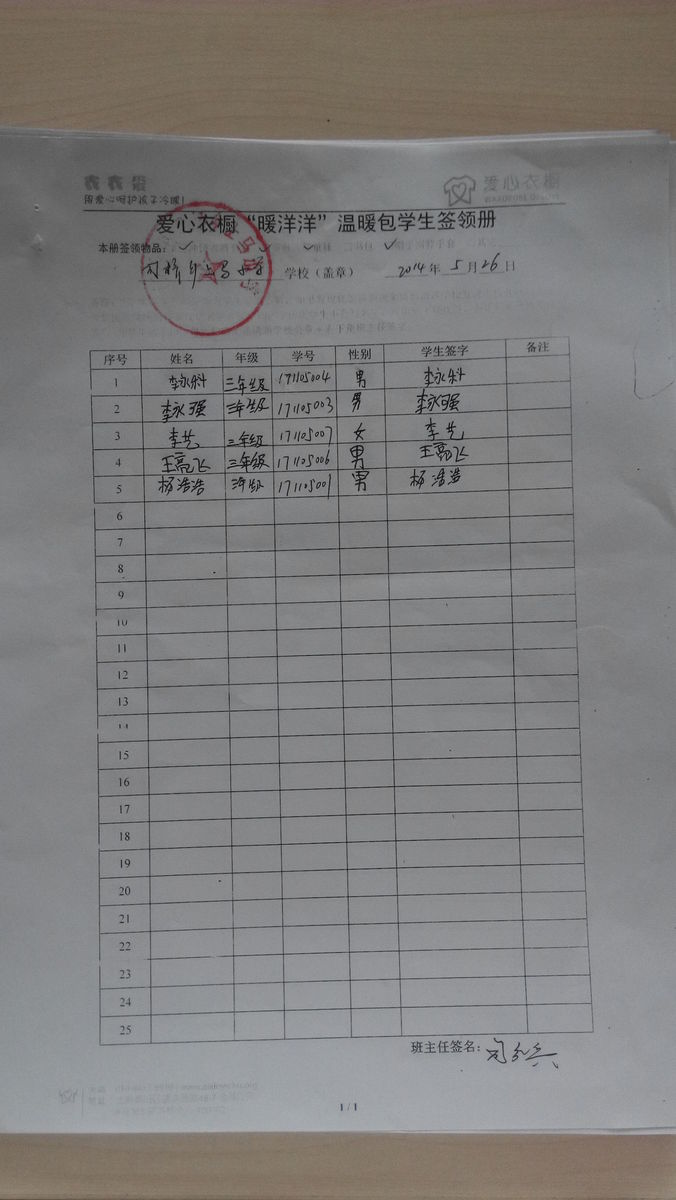 用爱心呵护孩子冷暖!
爱心衣橱
爱心衣橱“暖洋洋”温暖包学生签领册
本册签领物品:
学校（盖章） 2014年 5月26日
序号 姓名 年级 学号 性别 学生签字 备注
1 李永科 三年级 171105004 男 李永科
2 李永强 三年级 171105003 男 李永强
3 李艺 三年级 171105007 女 李艺
4 王亮飞 三年级 171105006 男 王亮飞
5 杨浩浩 三年级 171105001 男 杨浩浩
6
7
8
9
10
11
12
13
14
15
16
17
18
19
20
21
22
23
24
25
班主任签名:
1 / 1